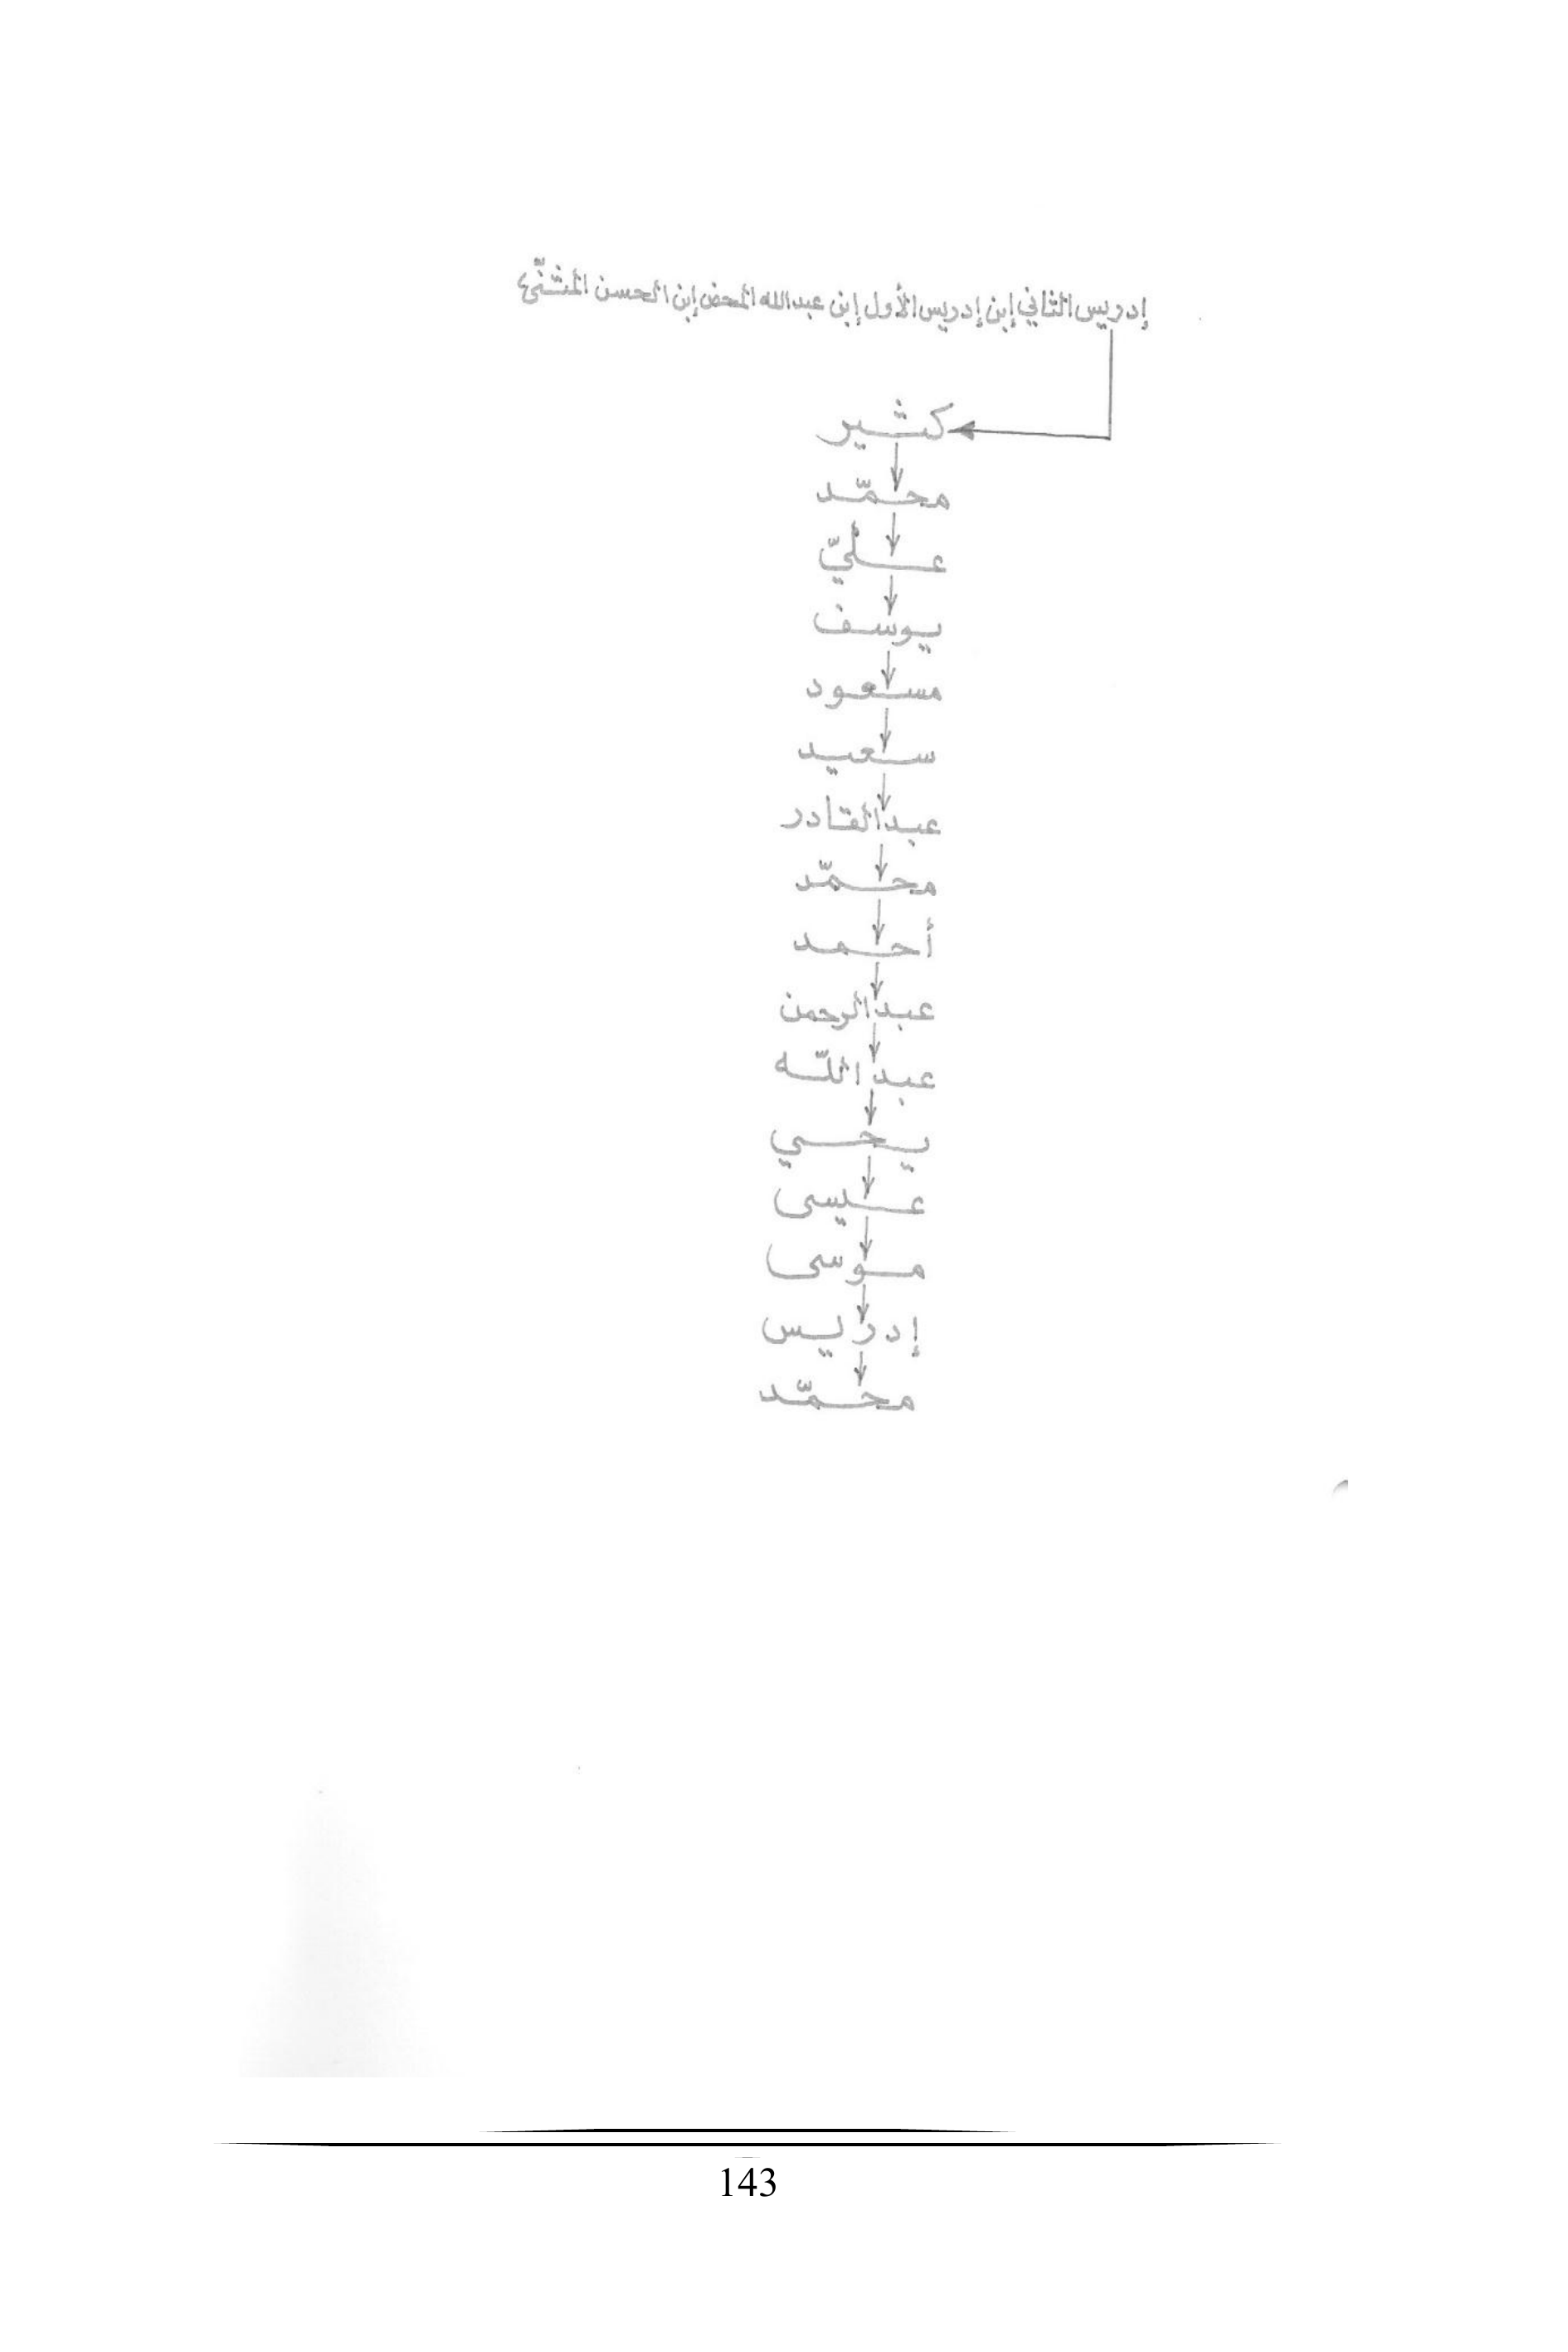 إدريس الثاني إبن إدريس الأول إبن عبدالله المحض إبن الحسن المثنّى
كثير
محمّد
عليّ
يوسف
مسعود
سعيد
عبدالقادر
محمّد
أحمد
عبدالرحمن
عبد اللّه
يحيي
عيسى
موسى
إدريس
محمّد
143